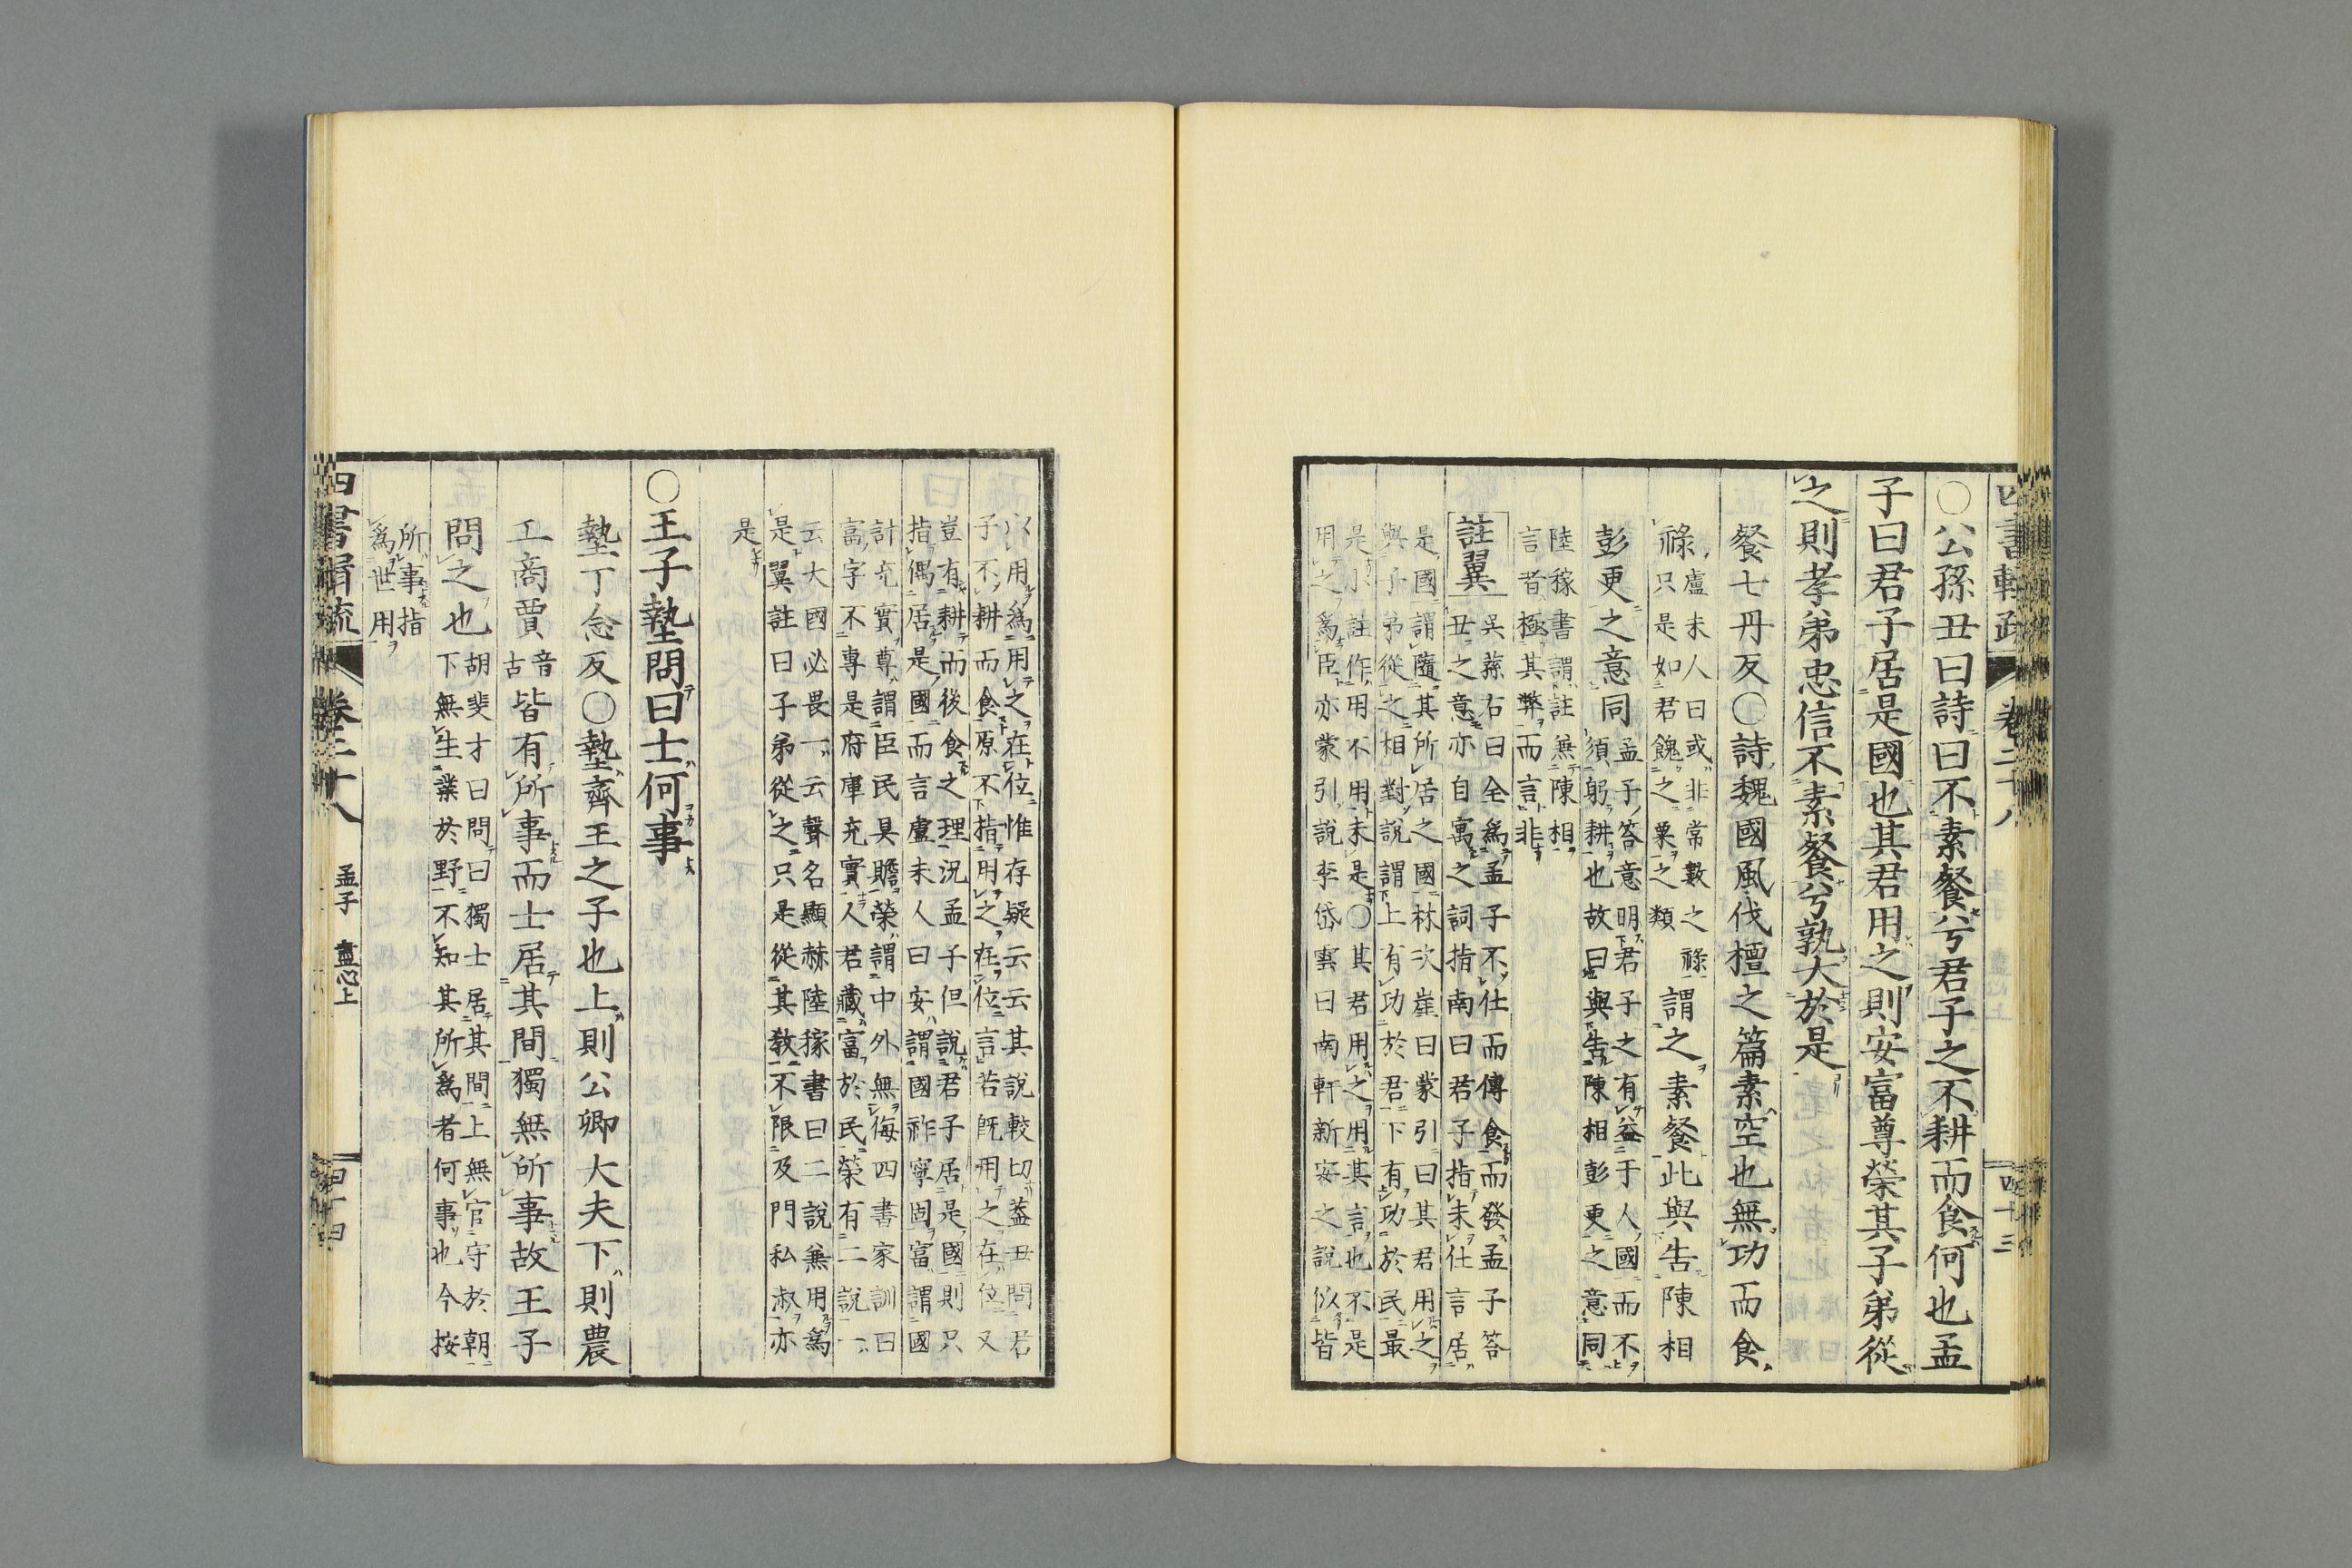 四書輯疏 卷二十八 四十三
○公孫丑曰詩曰不素餐兮君子之不耕而食何也孟
子曰君子居是國也其君用之則安富尊榮其子弟從
之則孝弟忠信不素餐兮孰大於是
餐七丹反○詩魏國風伐檀之篇素空也無功而食
祿盧未人曰或非常數之祿
只是如君餽之粟之類謂之素餐此與告陳相
彭更之意同孟子答意明君子之有益于人國而不
須躬耕也故曰與告陳相彭更之意同
陸稼書謂註無陳相
言者極其弊而言非
註翼吳蓀右曰全為孟子不仕而傳食而發孟子答
丑之意亦自寓之詞指南曰君子指未仕言居
是國謂隨其所居之國林次崖曰蒙引曰其君用之
與子弟從之相對說謂上有功於君下有功於民最
是小註作用不用未是○其君用之用其言也不是
用之為臣亦蒙引說李岱雲曰南軒新安之說似皆
以用為用之在位惟存疑云云其說較切蓋丑問君
子不耕而食原不指用之在位言若既用之在位又
豈有耕而後食之理況孟子但說君子居是國則只
指偶居是國而言盧未人曰安謂國祚寧固富謂國
計充實尊謂臣民具瞻榮謂中外無侮四書家訓曰
富字不專是府庫充實人君藏富於民榮有二說一
云大國必畏一云聲名顯赫陸稼書曰二說兼用為
是翼註曰子弟從之只是從其教不限及門私淑亦
是
○王子墊問曰士何事
墊丁念反○墊齊王之子也上則公卿大夫下則農
工商賈音古皆有所事而士居其間獨無所事故王子
問之也胡斐才曰問曰獨士居其間上無官守於朝
下無生業於野不知其所為者何事也今按
所事指
為世用
四書輯疏 卷二十八 孟子 盡心上 四十四